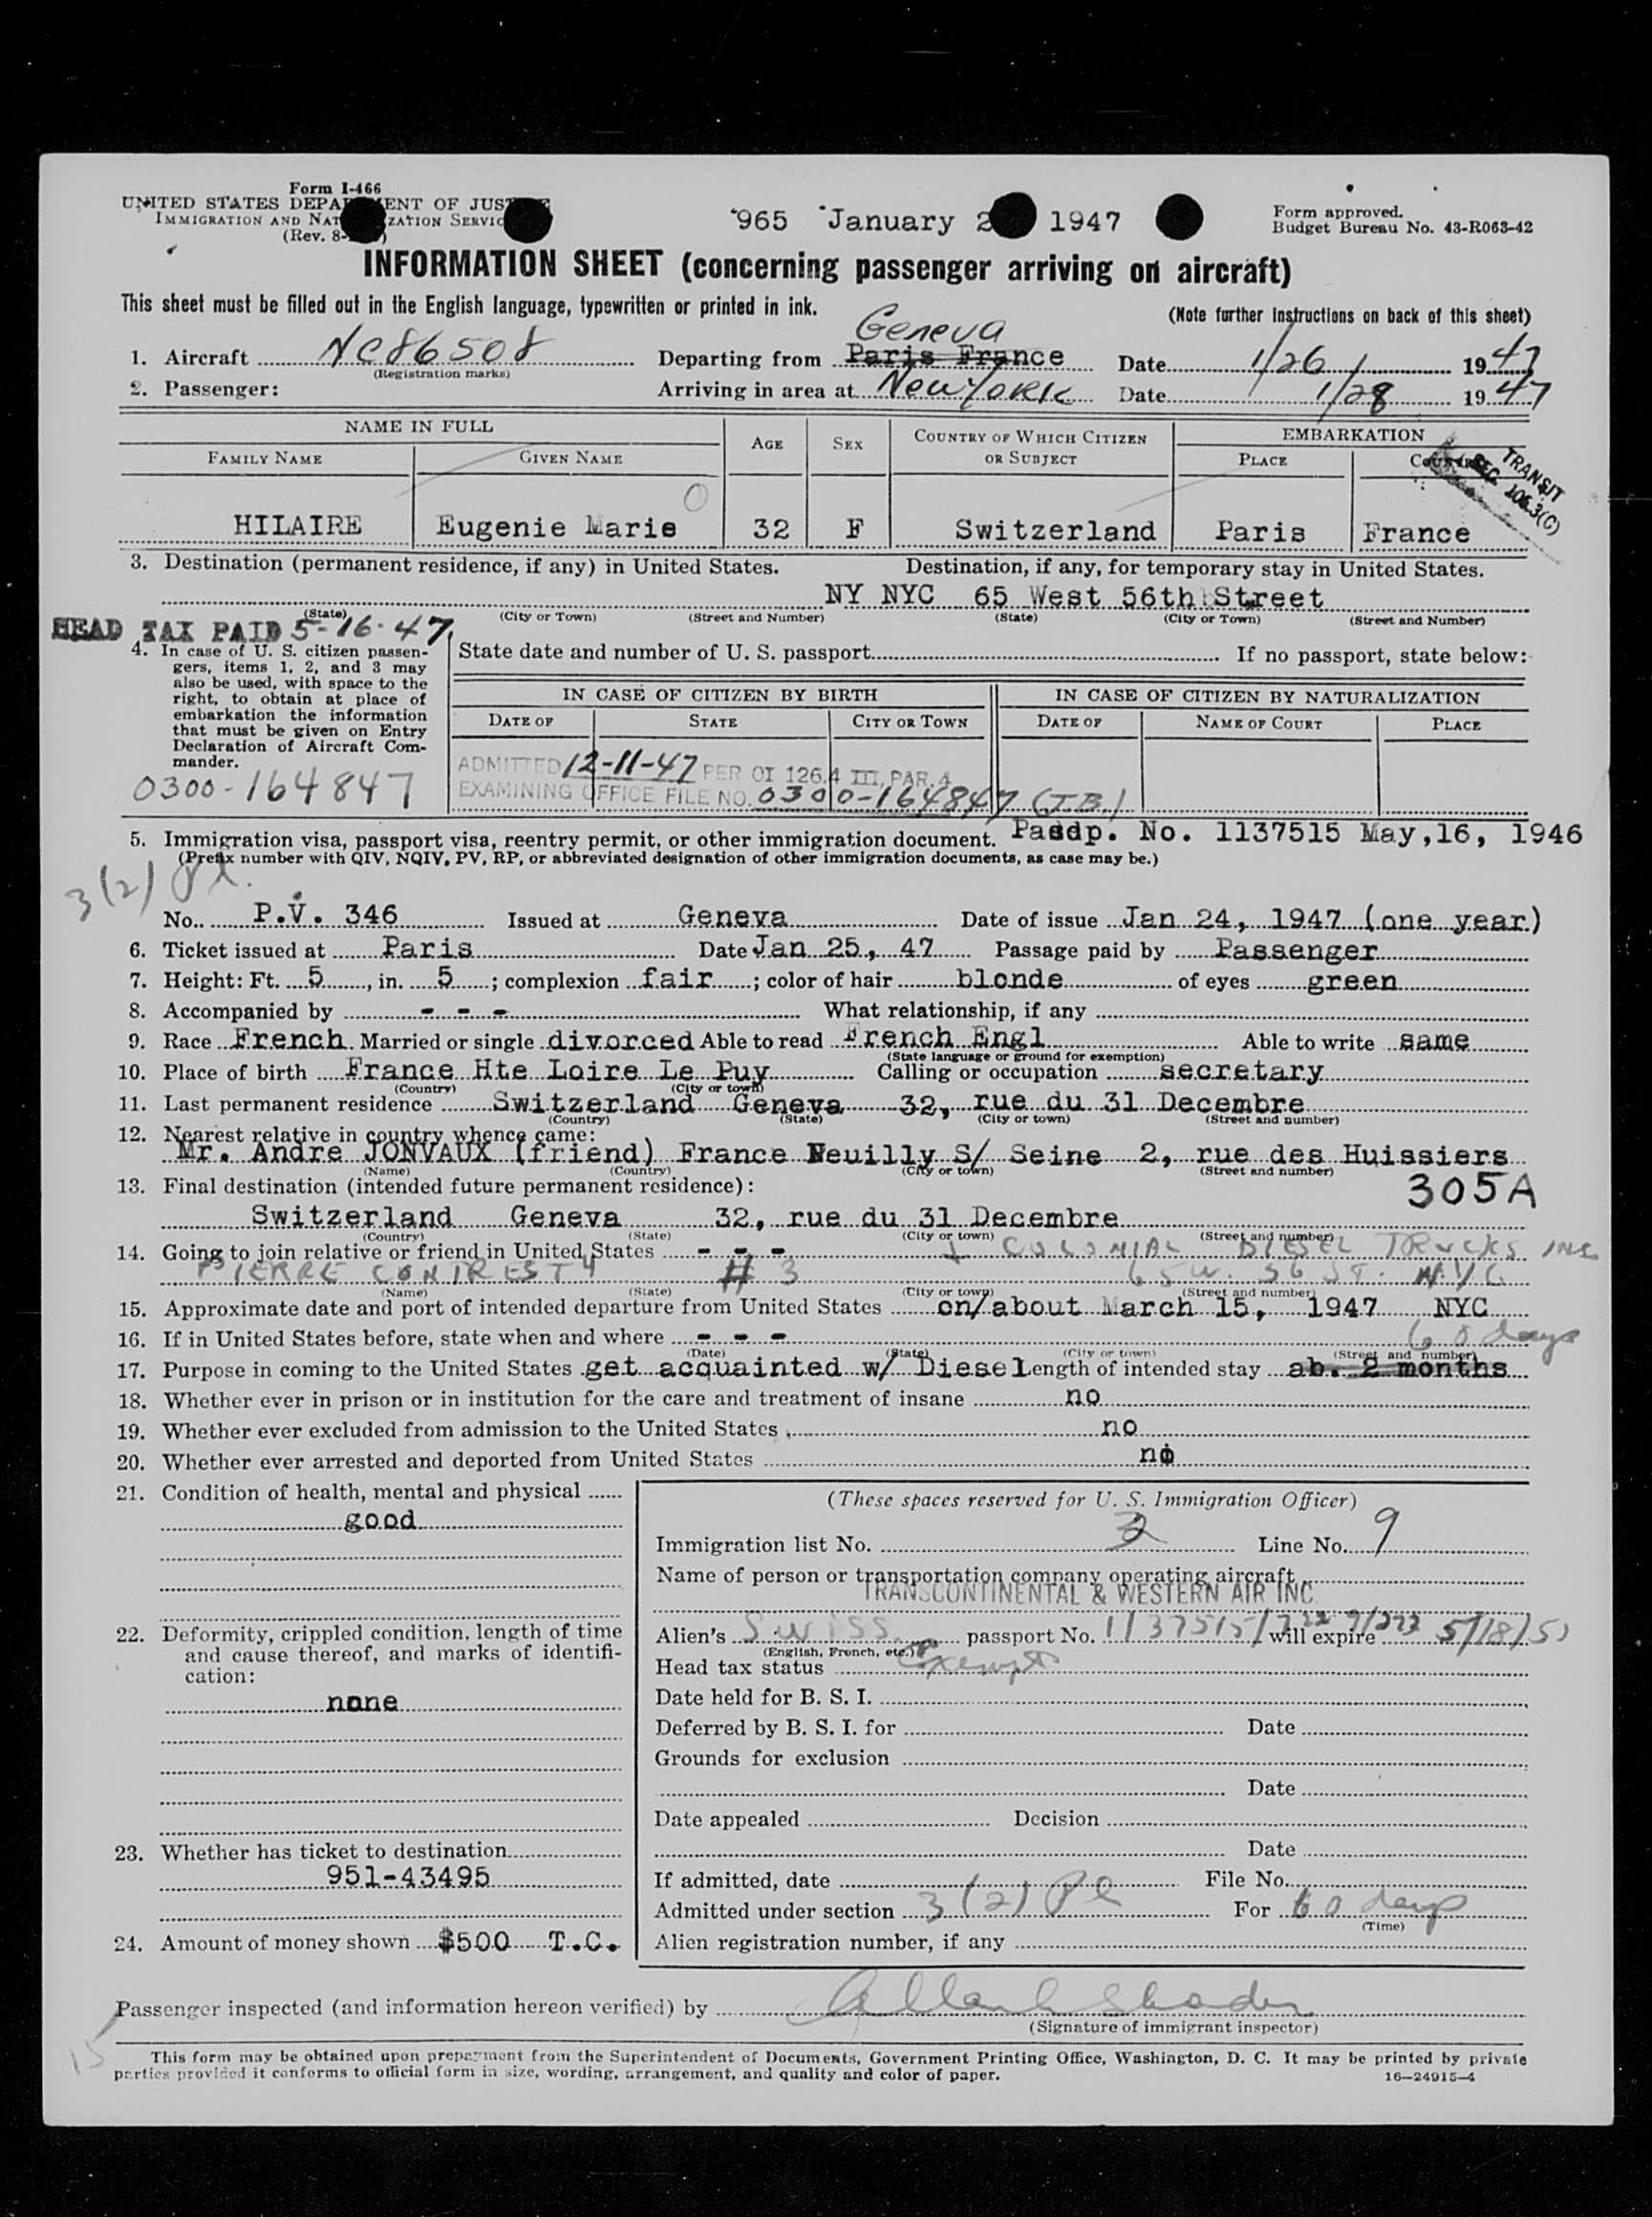 Form I-466
UNITED STATES DEPA ENT OF JUS
IMMIGRATION AND NAT ZATION SERVIC
(Rev. 8-
965 January 2 1947
Form approved.
Budget Bureau No. 43-R063-42
INFORMATION SHEET (concerning passenger arriving on aircraft)
This sheet must be filled out in the English language, typewritten or printed in ink.
(Note further instructions on back of this sheet)
Geneva
1. Aircraft NC86508 Departing from Paris France Date 1/26/ 1947
(Registration marks)
2. Passenger: Arriving in area at New York Date 1/28 1947
NAME IN FULL AGE SEX COUNTRY OF WHICH CITIZEN OR SUBJECT EMBARKATION
FAMILY NAME GIVEN NAME PLACE
TRANSIT
SEC. 106.3(C)
HILAIRE Eugenie Marie 32 F Switzerland Paris France
3. Destination (permanent residence, if any) in United States. Destination, if any, for temporary stay in United States.
NY NYC 65 West 56th Street
(State) (City or Town) (Street and Number) (State) (City or Town) (Street and Number)
HEAD TAX PAID 5-16-47
4. In case of U. S. citizen passen-
gers, items 1, 2, and 3 may
also be used, with space to the
right, to obtain at place of
embarkation the information
that must be given on Entry
Declaration of Aircraft Com-
mander.
0300-164847
State date and number of U. S. passport If no passport, state below:
IN CASE OF CITIZEN BY BIRTH IN CASE OF CITIZEN BY NATURALIZATION
DATE OF STATE CITY OR TOWN DATE OF NAME OF COURT PLACE
ADMITTED 12-11-47 PER OI 126.4 III, PAR. 4
EXAMINING OFFICE FILE NO. 0300-164847 (T.B.)
5. Immigration visa, passport visa, reentry permit, or other immigration document. Passp. No. 1137515 May,16, 1946
(Prefix number with QIV, NQIV, PV, RP, or abbreviated designation of other immigration documents, as case may be.)
3(2) Pl.
No. P.V. 346 Issued at Geneva Date of issue Jan 24, 1947 (one year)
6. Ticket issued at Paris Date Jan 25, 47 Passage paid by Passenger
7. Height: Ft. 5, in. 5; complexion fair; color of hair blonde of eyes green
8. Accompanied by - - - What relationship, if any
9. Race French Married or single divorced Able to read French Engl Able to write same
(State language or ground for exemption)
10. Place of birth France Hte Loire Le Puy Calling or occupation secretary
(Country) (City or town)
11. Last permanent residence Switzerland Geneva 32, rue du 31 Decembre
(Country) (State) (City or town) (Street and number)
12. Nearest relative in country whence came:
Mr. Andre JONVAUX (friend) France Neuilly S/ Seine 2, rue des Huissiers
(Name) (Country) (City or town) (Street and number)
13. Final destination (intended future permanent residence):
305A
Switzerland Geneva 32, rue du 31 Decembre
(Country) (State) (City or town) (Street and number)
14. Going to join relative or friend in United States - - - COLONIAL DIESEL TRUCKS INC
PIERRE CONTRESTY # 3 65 W. 56 ST. N.Y.C
(Name) (State) (City or town) (Street and number)
15. Approximate date and port of intended departure from United States on/about March 15, 1947 NYC
16. If in United States before, state when and where - - - 60 days
(Date) (State) (City or town) (Street and number)
17. Purpose in coming to the United States get acquainted w/ Diesel Length of intended stay ab. 2 months
18. Whether ever in prison or in institution for the care and treatment of insane no
19. Whether ever excluded from admission to the United States no
20. Whether ever arrested and deported from United States no
21. Condition of health, mental and physical
good
22. Deformity, crippled condition, length of time
and cause thereof, and marks of identifi-
cation:
none
23. Whether has ticket to destination
951-43495
24. Amount of money shown $500 T.C.
(These spaces reserved for U. S. Immigration Officer)
Immigration list No. 2 Line No. 9
Name of person or transportation company operating aircraft
TRANSCONTINENTAL & WESTERN AIR INC.
Alien's Swiss passport No. 1137515/ will expire 5/18/51
(English, French, etc.)
Head tax status Exempt
Date held for B. S. I.
Deferred by B. S. I. for Date
Grounds for exclusion
Date
Date appealed Decision
Date
If admitted, date File No.
Admitted under section 3(2) Pl For 60 days
(Time)
Alien registration number, if any
Passenger inspected (and information hereon verified) by
(Signature of immigrant inspector)
15
This form may be obtained upon prepayment from the Superintendent of Documents, Government Printing Office, Washington, D. C. It may be printed by private
parties provided it conforms to official form in size, wording, arrangement, and quality and color of paper.
16—24915-4